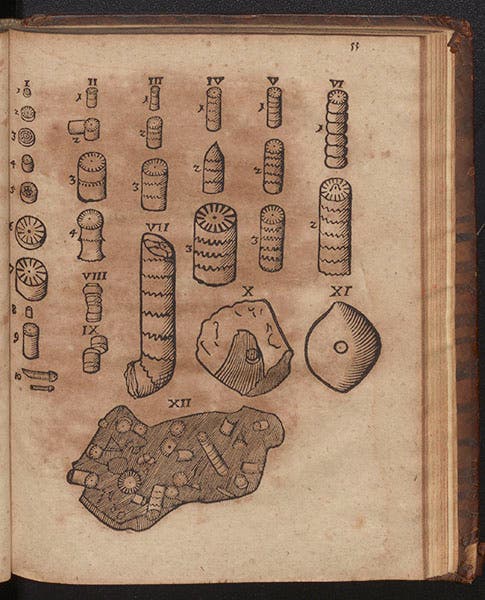 55
I II III IV V VI
1 1 1 1 1 1
2 2 2 2 2
3
4 3 3 2 2
5
6 4 3 3 2
VII
7
VIII
8 X XI
9 IX
10
XII